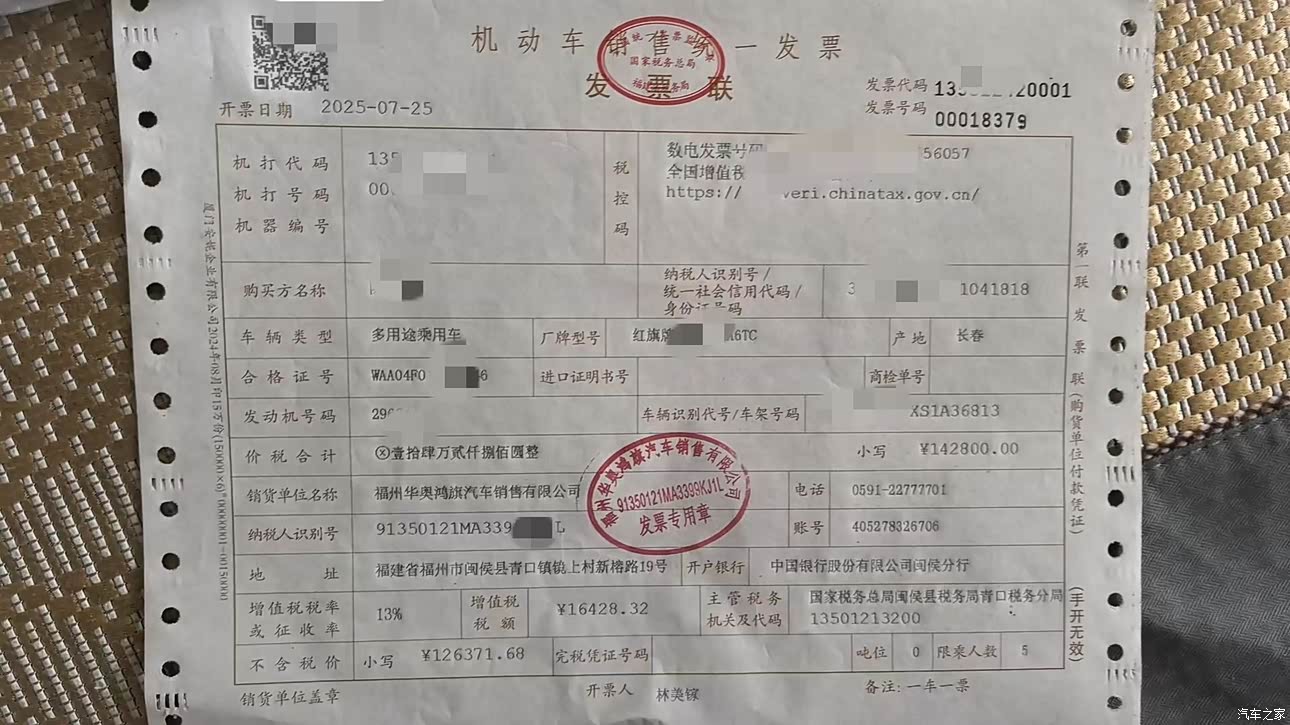 机动车销售统一发票
发票联
国家税务总局
发票代码
20001
发票号码 00018379
开票日期 2025-07-25
机打代码
机打号码
机器编号
税控码
数电发票号码 56057
全国增值税
https:// veri.chinatax.gov.cn/
购买方名称
纳税人识别号/
统一社会信用代码/
身份证号码
1041818
车辆类型 多用途乘用车 厂牌型号 红旗牌 A6TC 产地 长春
合格证号 WAA04F0 6 进口证明书号 商检单号
发动机号码 车辆识别代号/车架号码 XS1A36813
价税合计 ⊗壹拾肆万贰仟捌佰圆整 小写 ¥142800.00
销货单位名称 福州华奥鸿旗汽车销售有限公司 电话 0591-22777701
纳税人识别号 91350121MA339 L 账号 405278326706
福州华奥鸿旗汽车销售有限公司
91350121MA3399KJ1L
发票专用章
地址 福建省福州市闽侯县青口镇镜上村新榕路19号 开户银行 中国银行股份有限公司闽侯分行
增值税税率或征收率 13% 增值税税额 ¥16428.32 主管税务机关及代码 国家税务总局闽侯县税务局青口税务分局
13501213200
不含税价 小写 ¥126371.68 完税凭证号码 吨位 0 限乘人数 5
销货单位盖章 开票人 林美镓 备注:一车一票
第一联 发票联(购货单位付款凭证)
(手开无效)
汽车之家